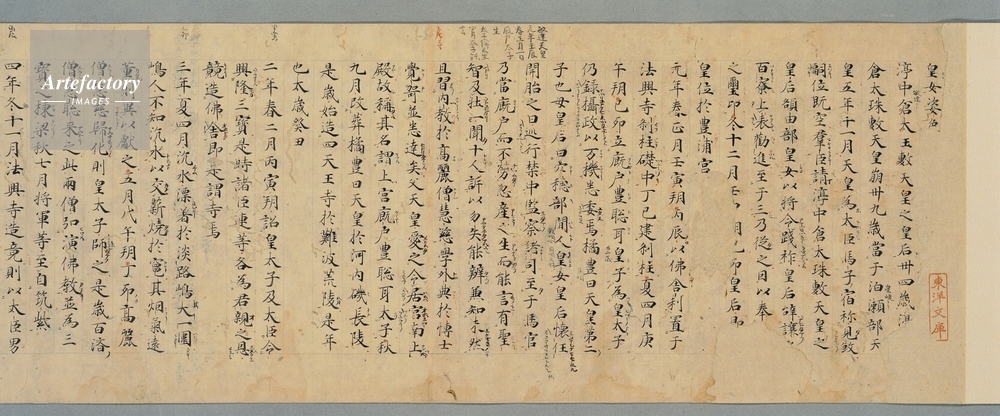 皇女姿色
渟中倉太玉敷天皇之皇后卅四歳渟
倉太珠敷天皇崩卅九歳當于泊瀬部天
皇五年十一月天皇為大臣馬子宿祢見敘
嗣位既空群臣請渟中倉太珠敷天皇之
皇后額田部皇女以將令踐祚皇后辭讓
百寮上表勸進至于三乃從之因以奉
之璽印冬十二月
皇后
皇位於豊浦宮
元年春正月壬寅朔丙辰以佛舍利置于
法興寺刹柱礎中丁巳建刹柱夏四月庚
午朔己卯立廐戸豊聰耳皇子為皇太子
仍録攝政以万機悉委焉橘豊日天皇第二
子也母皇后曰穴穗部間人皇女皇后懐任
開胎之日巡行禁中監察諸司至于馬官
乃當廐戸而不勞忽産之生而能言有聖
智及壮一聞十人訴以勿失能辨兼知未然
且習内教於高麗僧慧慈學外典於博士
覺哿並悉達矣父天皇愛之令居宮南上
殿故稱其名謂上宮廐戸豊聰耳太子秋
九月改葬橘豊日天皇於河内磯長陵
是歳始造四天王寺於難波荒陵是年
也太歳癸丑
二年春二月丙寅朔詔皇太子及大臣令
興隆三寶是時諸臣連等各為君親之恩
競造佛舍即是謂寺焉
三年夏四月沉水漂着於淡路嶋大一圍
嶋人不知沉水以交薪燒於竈其烟氣遠
薫則異以獻之五月戊午朔丁卯高麗
僧慧慈歸化則皇太子師之是歳百済
僧慧聰来之此兩僧弘演佛教並為三
寶之棟梁秋七月將軍等至自筑紫
四年冬十一月法興寺造竟則以大臣男
東洋文庫
Artefactory
IMAGES